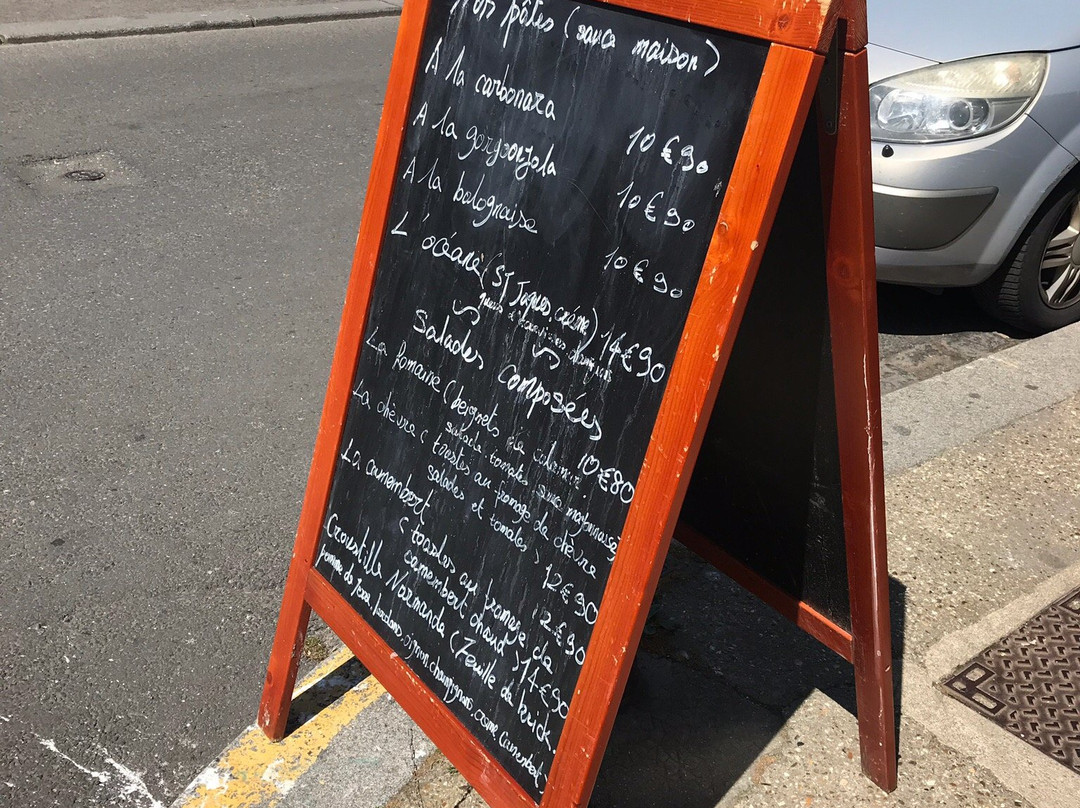 pâtes (sauce maison)
A la carbonara 10€90
A la gorgonzola 10€90
A la bolognaise 10€90
L'océane (ST Jaques, crème) 14€90
Salades composées
La Romaine (beignets de calamar, 10€80
salade, tomates, sauce mayonnaise)
La chèvre (toastes au fromage de chèvre
salades et tomates) 12€90
La camembert (toastes au fromage de 12€90
camembert chaud) 14€90
Croustille Normande (Feuille de brick,
pomme de terre, lardons, oignon, champignons, crème, camembert)